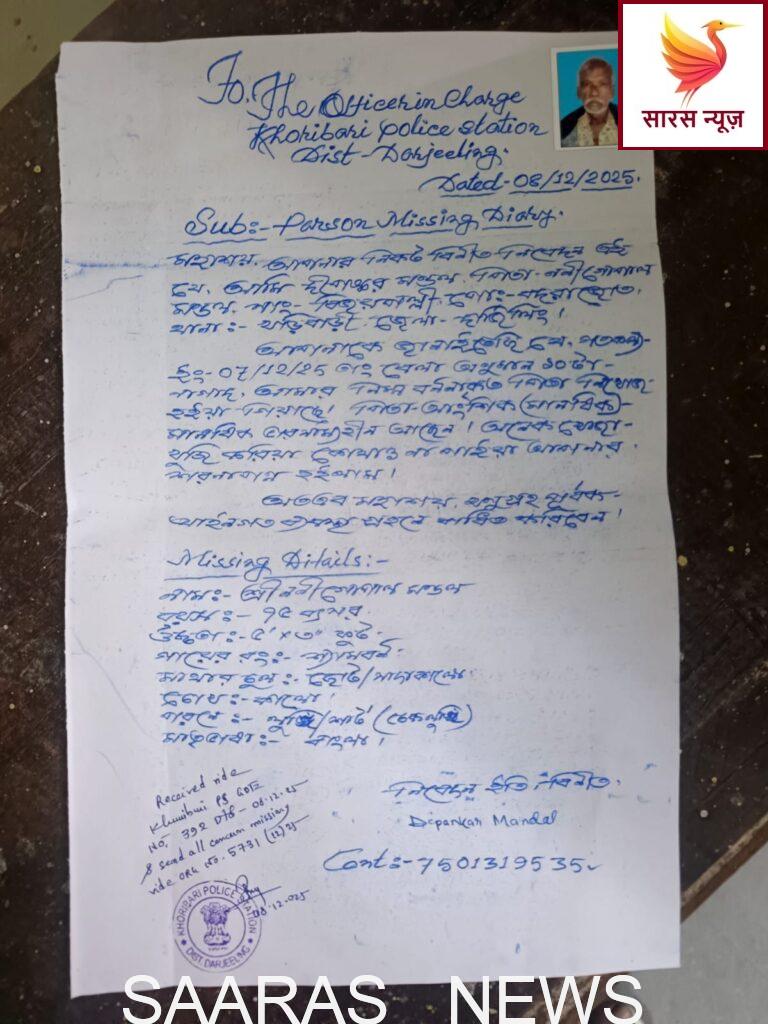 सारस न्यूज़
To, The Officer in Charge
Khoribari Police Station
Dist - Darjeeling.
Dated - 08/12/2025.
Sub:- Parson Missing Diary.
মহাশয়, আপনার নিকট বিনীত নিবেদন এই
যে, আমি দীপঙ্কর মন্ডল, পিতা- ননীগোপাল
মন্ডল, সাং- পোঃ- বদরাজোত,
থানা:- খড়িবাড়ী, জেলা- দার্জিলিং।
আপনাকে জানাইতেছি যে, গতকাল-
ইং- 07/12/25 তাং বেলা অনুমান ১০টা-
নাগাদ, আমার নিম্ন বর্ননাকৃত পিতা নিখোঁজ
হইয়া গিয়াছে। পিতা- আংশিক (মানষিক)-
মানষিক ভারসাম্যহীন আছেন। অনেক খোঁজা-
খুজি করিয়া কোথাও না পাইয়া আপনার
শরনাপন্ন হইলাম।
অতএব মহাশয়, অনুগ্রহ পূর্বক-
আইনগত ব্যবস্থা গ্রহনে বাধিত করিবেন।
Missing Ditails:-
নাম:- শ্রী ননীগোপাল মন্ডল
বয়স:- ৭৫ বৎসর.
উচ্চতা:- ৫' x ৩" ফুট.
গায়ের রং:- শ্যামবর্ন.
মাথার চুল:- ছোট/সাদাকালো.
চোখ:- কালো।
পরনে:- লুঙ্গি/শার্ট (চেকলুঙ্গি)
মাতৃভাষা:- বাংলা।
নিবেদন ইতি বিনীত.
Dipankar Mandal
Cont:- 7501319535
Received vide
Khoribari PS GDE
No, 392 Dtd - 08.12.25
& send all concern missing
vide ORG No. 5731 (12)25
08.12.025
KHORIBARI POLICE STATION
DIST. DARJEELING
SAARAS NEWS